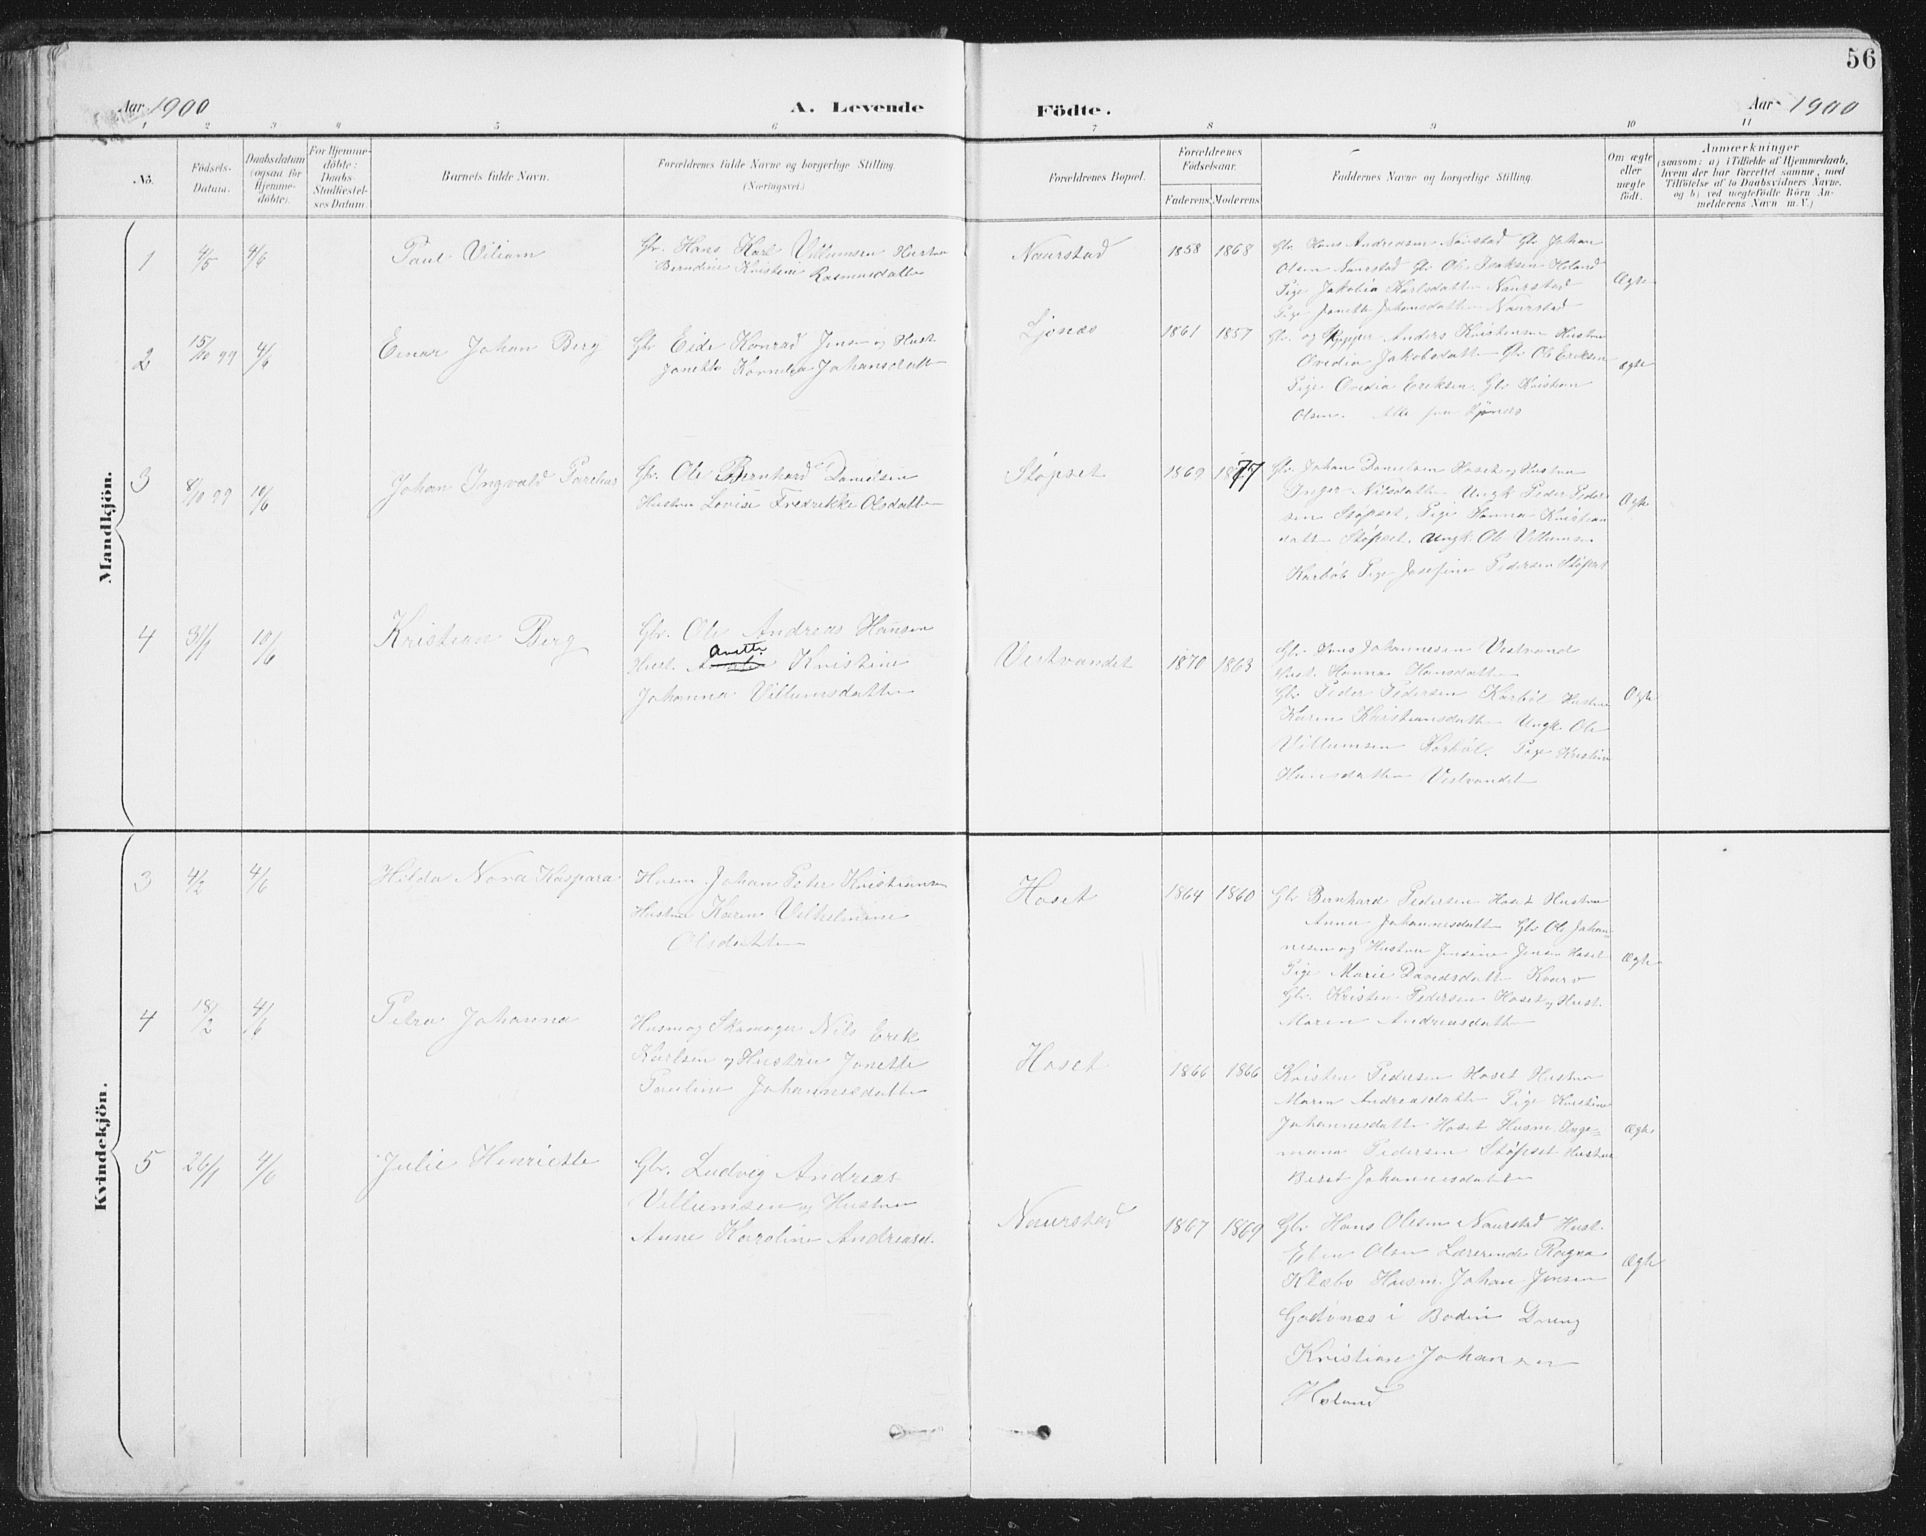 56
Aar 1900
A. Levende
Födte.
Aar 1900
1 2 3 4 5 6 7 8 9 10 11
No.
Födsels-
Datum.
Daabsdatum
(ogsaa for
Hjemme-
döbte).
For Hjemme-
döbte:
Daabs-
Stadfestel-
ses Datum.
Barnets fulde Navn.
Forældrenes fulde Navne og borgerlige Stilling.
(Næringsvei.)
Forældrenes Bopæl.
Forældrenes
Födselsaar.
Faderens. Moderens.
Faddernes Navne og borgerlige Stilling.
Om ægte
eller
uægte
födt.
Anmærkninger
(saasom: a) i Tilfælde af Hjemmedaab,
hvem der har forrettet samme, med
Tilföielse af to Daabsvidners Navne,
og b) ved uegtefödte Börn An-
melderens Navn m. V.)
Mandkjön.
1 4/5 4/6 Paul Viliam
Gbr. Hans Karl Villumsen Hustru
Berndine Kristine
Rasmusdatter
Naurstad 1858 1868
Gbr Hans Andreasen Naurstad Gbr Johan
Olsen Naurstad Gbr Ole Isaksen Heland
Pige Jakobia Karlsdatter Naurstad
Pige Janette Johansdatter Naurstad
Ægte
2 15/10 99 4/6 Einar Johan Berg
Gbr Eide Konrad Jensen og Hust.
Janette Kornelia Johansdatter
Ljønæs 1861 1857
Gbr. og Skipper Anders Kristensen Hustru
Ovedia Jakobsdatter Gbr Ole Eriksen
Pige Ovedia Eriksen. Gbr Kristian
Olsen. Alle fra Ljønæs
ægte
3 8/10 99 10/6 Johan Ingvald Parelius
Gbr. Ole Bernhard Danielsen
Hustru Lovise Fredrikke Olsdatter
Støpset 1869 1877
Gbr. Johan Danielsen Hoset og Hustru
Inger Nilsdatter Ungk Peder Peder-
sen Støpset. Pige Hanna Kristian
datter Støpset. Ungk. Ole Villumsen
Karbøl Pige Josefine Pedersen Støpset
Ægte
4 31/1 10/6 Kristian Berg
Gbr. Ole Andreas Hansen
Hust. Anette Kristine
Johanna Villumsdatter
Vestvandet 1870 1863
Gbr Jens Johannesen Vestvand
Hust. Hanna Hansdatter
Gbr Peder Pedersen Karbøl Hustru
Karen Kristiansdatter Ungk. Ole
Villumsen Karbøl. Pige Kristine
Hansdatter Vestvandet
Ægte
Kvindekjön.
3 4/2 4/6 Hilda Nora Kaspara
Husm Johan Peter Kristiansen
Hustru Karen Vilhelmine
Olsdatter
Hoset 1864 1860
Gbr Bernhard Pedersen Hoset Hustru
Anna Johannesdatter Gbr Ole Johan-
nesen og Hustru Jensine Jensen Hoset
Pige Marie Davidsdatter Kvarv
Gbr. Kristen Pedersen Hoset og Hust.
Maren Andreasdatter
Ægte
4 18/2 4/6 Petra Johanna
Husm og Skomager Nils Erik
Karlsen og Hustru Janette
Pauline Johannesdatter
Hoset 1866 1866
Kristen Pedersen Hoset Hustru
Maren Andreasdatter Pige Kirstine
Johannesdatter Hoset Husm. Inge-
mann Pedersen Støpset Hustru
Beret Johannesdatter
Ægte
5 26/1 4/6 Julie Henriette
Gbr. Ludvig Andreas
Villumsen og Hustru
Anne Karoline Andreasd.
Naurstad 1867 1869
Gbr Hans Olsen Naurstad Hust.
Elen Olsen Lærerinde Ragna
Klæbo Husm. Johan Jensen
Godønes i Bodin Dreng
Kristian Johansen
Heland
Ægte